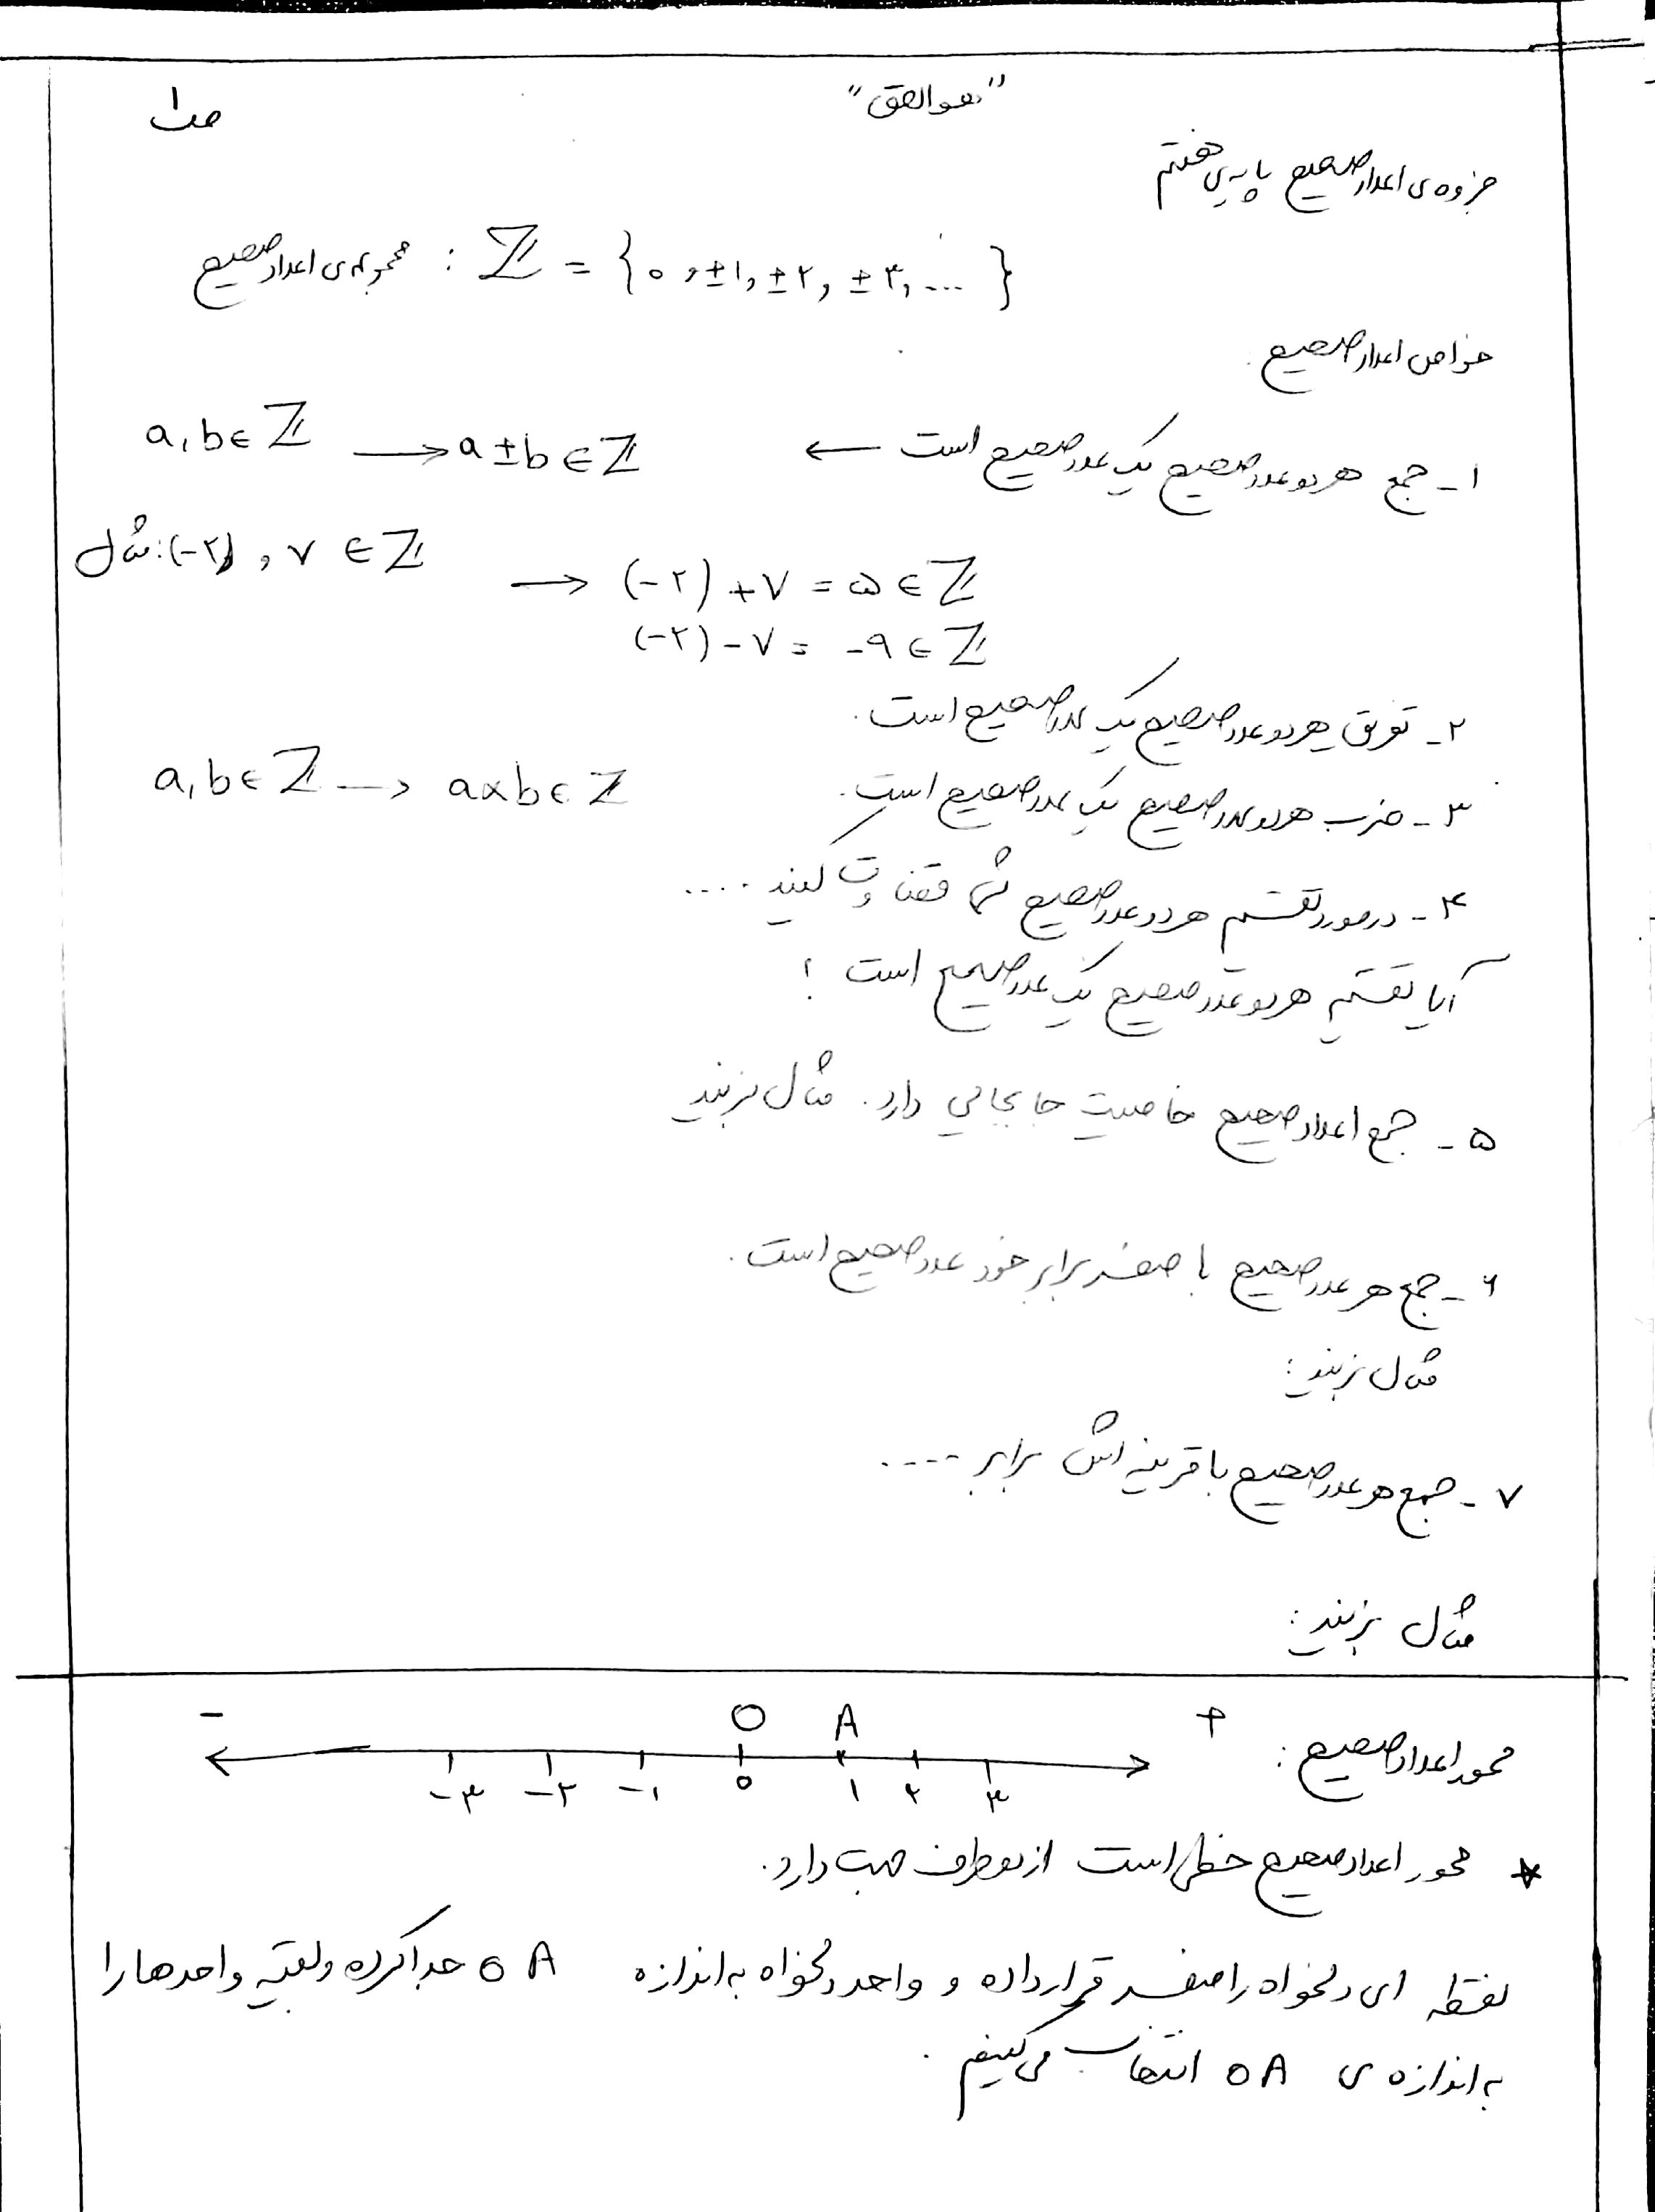 "هوالحق"
ص۱
جزوه‌ی اعداد صحیح پایه‌ی هفتم
مجموعه‌ی اعداد صحیح : Z = {۰, ±۱, ±۲, ±۳, ...}
خواص اعداد صحیح.
۱- جمع هر دو عدد صحیح یک عدد صحیح است ← a,b∈Z → a±b∈Z
مثال: (-۲), ۷ ∈ Z → (-۲)+۷ = ۵ ∈ Z
(-۲)-۷ = -۹ ∈ Z
۲- تفریق هر دو عدد صحیح یک عدد صحیح است.
۳- ضرب هر دو عدد صحیح یک عدد صحیح است. a,b∈Z → a×b∈Z
۴- در مورد تقسیم هر دو عدد صحیح شما قضاوت کنید ....
آیا تقسیم هر دو عدد صحیح یک عدد صحیح است ؟
۵- جمع اعداد صحیح خاصیت جابجایی دارد. مثال بزنید
۶- جمع هر عدد صحیح با صفر برابر خود عدد صحیح است.
مثال بزنید:
۷- جمع هر عدد صحیح با قرینه اش برابر ....
مثال بزنید:
محور اعداد صحیح :
- O A +
-۳ -۲ -۱ ۰ ۱ ۲ ۳
* محور اعداد صحیح خطی است از دو طرف جهت دارد.
نقطه ای دلخواه را صفر قرار داده و واحد دلخواه به اندازه OA جدا کرده و بقیه واحدها را
به اندازه ی OA انتخاب می کنیم.